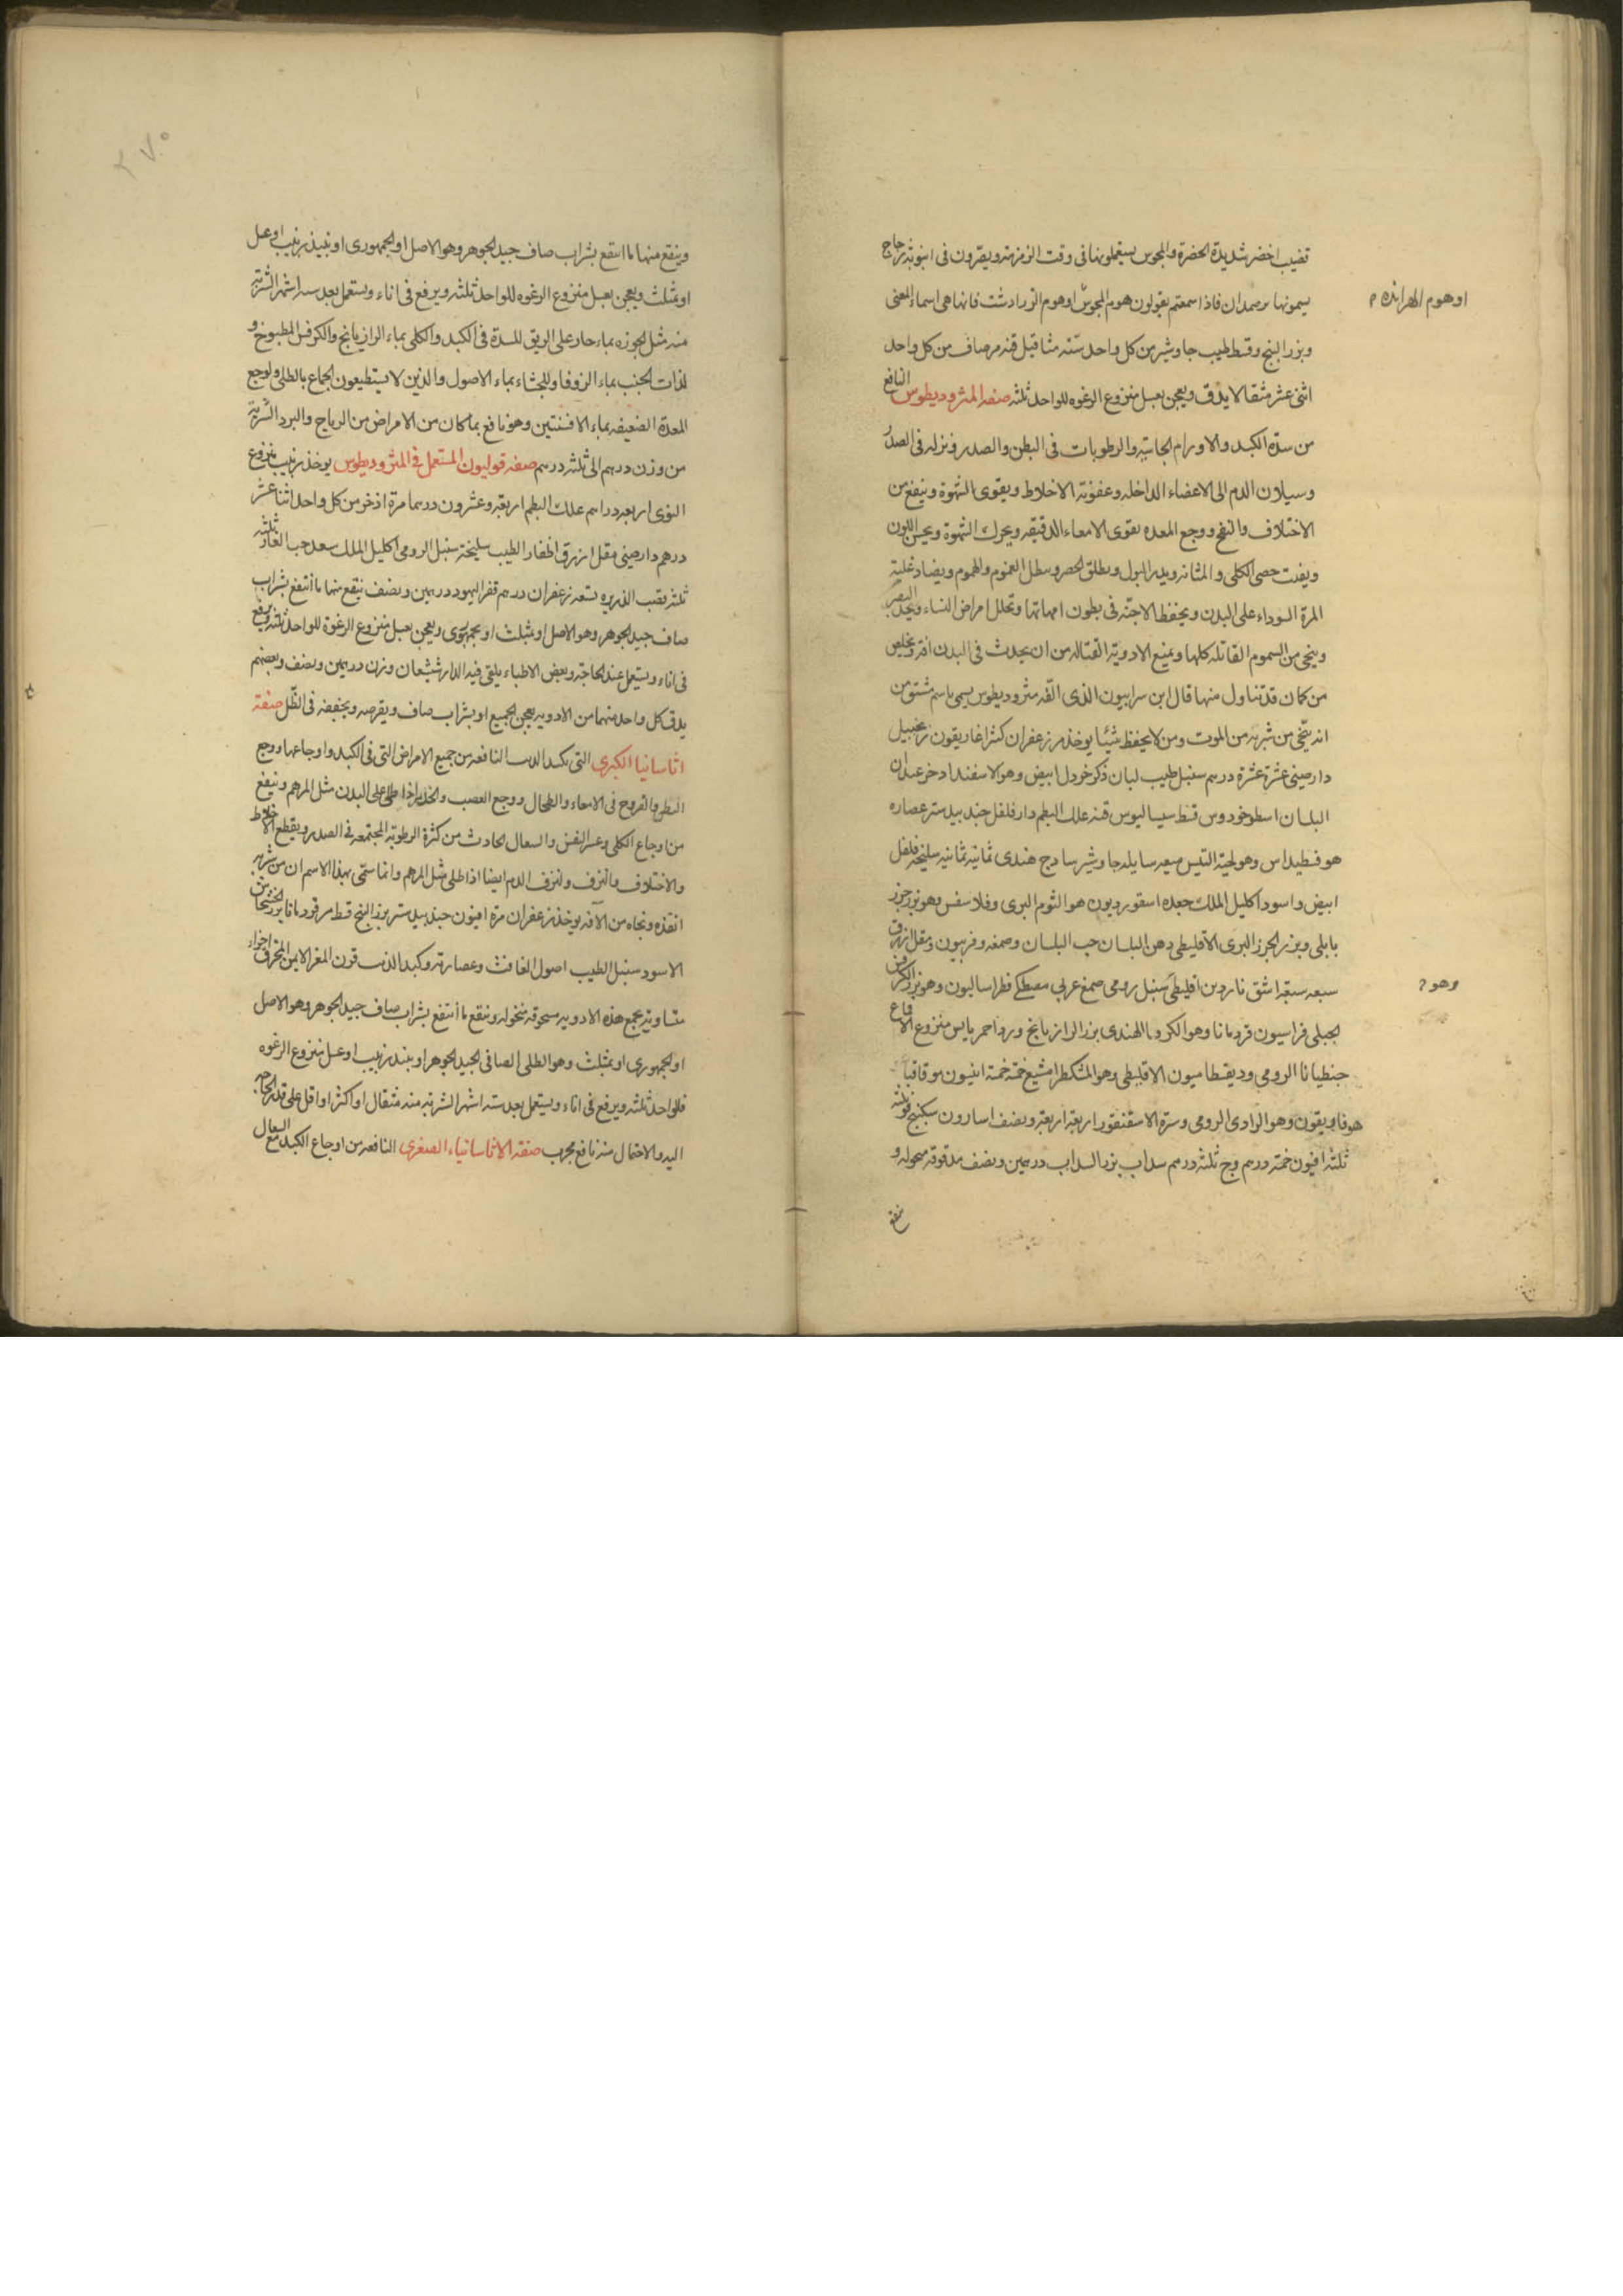 قضيب اخضر شديدة الخضرة والمجوس يستعملونها فى وقت الزمزمة ويصرون فى انبوبة زجاج
يسمونها برصمدان فاذا سمعتم يقولون هوم المجوس اوهوم الزرادشت فانها هى اسماء لمعنى
اوهوم الهرابذه
وبزر البنج وقسط طيب جاوشير من كل واحد ستة مثاقيل قنه مر صاف من كل واحد
اثنى عشر مثقالا يدق ويعجن بعسل منزوع الرغوه للواحد ثلثه صفه المثروديطوس النافع
من سدة الكبد والاورام الجاسية والرطوبات فى البطن والصدر ونزله فى الصدر
وسيلان الدم الى الاعضاء الداخله وعفونة الاخلاط ويقوى الشهوة وينفع من
الاختلاف والنفخ ووجع المعده يقوى الامعاء الدقيقه ويحرك الشهوة ويحسن اللون
ويفتت حصى الكلى والمثانه ويدر البول ويطلق الحصر ويبطل الغموم والهموم ويضاد غلبة
المرة السوداء على البدن ويحفظ الاجنة فى بطون امهاتها ويحلل امراض النساء ويحد البصر
وينجى من السموم القاتله كلها ويمنع الادوية القتاله من ان يحدث فى البدن افة ويخلص
من كان قد تناول منها قال ابن سرابيون الذى الفه مثروديطوس يسمى باسم مشتق من
انه ينجى من شربه من الموت ومن لا يحفظ شيئا يوخذ مر زعفران كثيرا غاريقون زنجبيل
دارصينى عشرة عشرة درهم سنبل طيب لبان ذكر خردل ابيض وهو الاسفند اذخر عيدان
البلسان اسطوخودوس قسط سيساليوس قنه علك البطم دارفلفل جندبيدستر عصاره
هوفسطيداس وهو لحية التيس ميعه سايله جاوشير ساذج هندى ثمانية ثمانيه سليخة فلفل
ابيض واسود اكليل الملك جعده اسقورديون هو الثوم البرى وفلاسفس وهو بزر جزر
بابلى وبزر الجزر البرى الاقليطى دهن البلسان حب البلسان وصمغه وفربيون ومقل ازرق
سبعه سبعة اشق ناردين اقليطى سنبل رومى صمغ عربى مصطكى فطراساليون وهو بزر الكرفس
وهو
الجبلى فراسيون قردمانا وهو الكرويا الهندى بزر الرازيانج ورد احمر يابس منزوع الاقماع
جنطيانا الرومى وديقطاميون الاقليطى وهو المشكطرامشيغ خمسة خمسة انيسون مو قاقيا
هوفاريقون وهو الدادى الرومى وسرة الاسقنقور اربعة اربعة ونصف اسارون سكبينج فو ثلثه
ثلثه افيون خمسة درهم وج ثلثه درهم سداب بزر السداب درهمين ونصف مدقوقة منخوله و
ينقع
وينقع منها ما انتقع بشراب صاف جيد الجوهر وهو الاصل او الجمهورى او بنبيذ زبيب او عسل
او بمثلث ويعجن بعسل منزوع الرغوه للواحد ثلثه ويرفع فى اناء ويستعمل بعد سته اشهر الشربة
منه مثل الجوزه بماء حار على الريق للسدة فى الكبد والكلى بماء الرازيانج والكرفس المطبوخ و
لذات الجنب بماء الزوفا وللجشاء بماء الاصول والذين لا يستطيعون الجماع بالطلى ولوجع
المعدة الضعيفه بماء الافسنتين وهو نافع بما كان من الامراض من الرياح والبرد الشربة
من وزن درهم الى ثلثه درهم صفه قوليون المستعمل فى المثروديطوس يوخذ زبيب منزوع
النوى اربعه دراهم علك البطم اربعة وعشرون درهما مرة اذخر من كل واحد اثنا عشر
درهم دارصينى مقل ازرق اظفار الطيب سليخة سنبل الرومى اكليل الملك سعد حب الغار ثلثه
ثلثه قصب الذريره تسعه زعفران درهم قفر اليهود درهمين ونصف ينقع منها ما انتقع بشراب
صاف جيد الجوهر وهو الاصل او بمثلث او بجمهورى ويعجن بعسل منزوع الرغوة للواحد ثلثه ويرفع
فى اناء ويستعمل عند الحاجة وبعض الاطباء يلقى فيه الدارشيشعان وزن درهمين ونصف وبعضهم
يدق كل واحد منهما من الادويه يعجن الجميع او بشراب صاف ويقرصه ويجففه فى الظل صفة
اثاسانيا الكبرى التى بكبد الذيب النافعه من جميع الامراض التى فى الكبد واوجاعها ووجع
البطن والقروح فى الامعاء والطحال ووجع العصب والخدر اذا طلى على البدن مثل المرهم وينفع
من اوجاع الكلى وعسر النفس والسعال الحادث من كثرة الرطوبة المجتمعه فى الصدر ويقطع الاخلاط
والاختلاف والنزف ولنزف الدم ايضا اذا طلى مثل المرهم وانما سمى بهذا الاسم ان من شربه
انقذه ونجاه من الآفه يوخذ زعفران مرة افيون جندبيدستر بزر البنج قسط مر قردمانا بزر الخشخاش
الاسود سنبل الطيب اصول الغافث وعصارته وكبد الذيب قرن المعز الايمن المحرق اجزاء
متساوية يجمع هذه الادويه مسحوقة منخوله وينقع ما انتقع بشراب صاف جيد الجوهر وهو الاصل
او الجمهورى او بمثلث وهو الطلى الصافى الجيد الجوهر او بنبيذ زبيب او عسل منزوع الرغوه
فلواحد ثلثه ويرفع فى اناء ويستعمل بعد سته اشهر الشربة منه مثقال او اكثر او اقل على قدر الحاجه
اليه والاحتمال منه نافع مجرب صفة الاثاسانياء الصغرى النافعه من اوجاع الكبد مع السعال